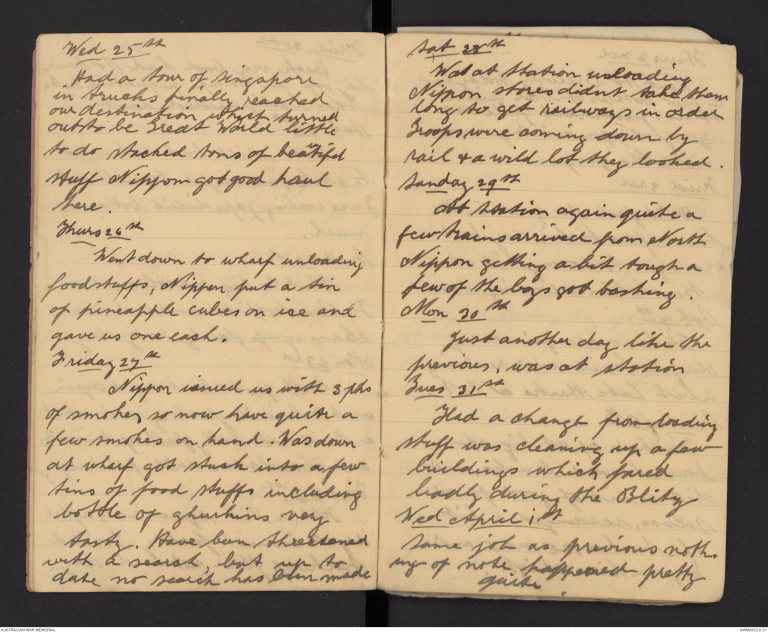 Wed 25th
Had a tour of Singapore
in trucks finally reached
our destination which turned
out to be Great World little
to do stacked tons of beatifd
stuff Nippon got good haul
here.
Thurs 26th
Went down to wharf unloading
foodstuffs, Nippon put a tin
of pineapple cubes on ice and
gave us one each.
Friday 27th
Nippon issued us with 3 pks
of smokes so now have quite a
few smokes on hand. Was down
at wharf got stuck into a few
tins of food stuffs including
bottle of ghurkins very
tasty. Have been threatened
with a search, but up to
date no search has been made
Sat 28th
Was at Station unloading
Nippon stores didnt take them
long to get railways in order
Troops were coming down by
rail & a wild lot they looked.
Sunday 29th
At station again quite a
few trains arrived from North
Nippon getting a bit tough a
few of the boys got bashing.
Mon 30th
Just another day like the
previous, was at station
Tues 31st
Had a change from loading
stuff was cleaning up a few
buildings which fared
badly during the Blitz
Wed April 1st
Same job as previous noth-
ing of note happened pretty
quite.
AUSTRALIAN WAR MEMORIAL